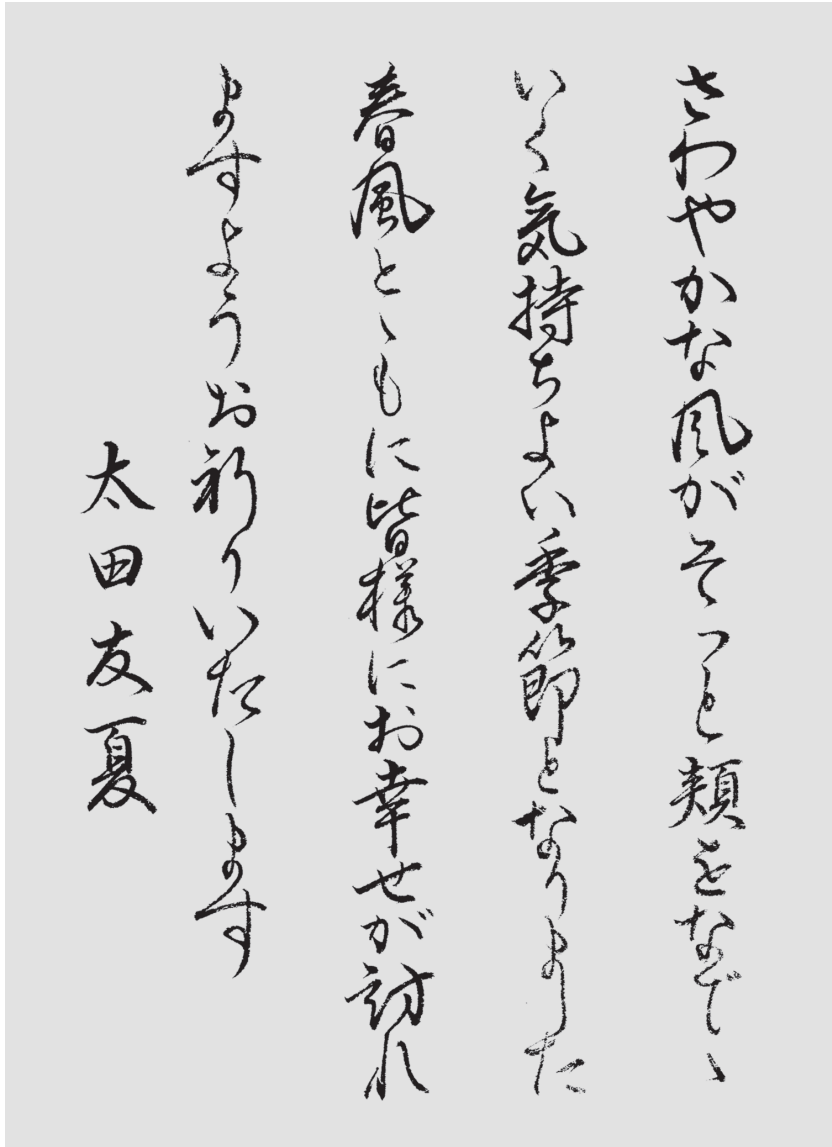 さわやかな風がそっと頬をなでゝ
いく気持ちよい季節となりました
春風とゝもに皆様にお幸せが訪れ
ますようお祈りいたします
太田友夏